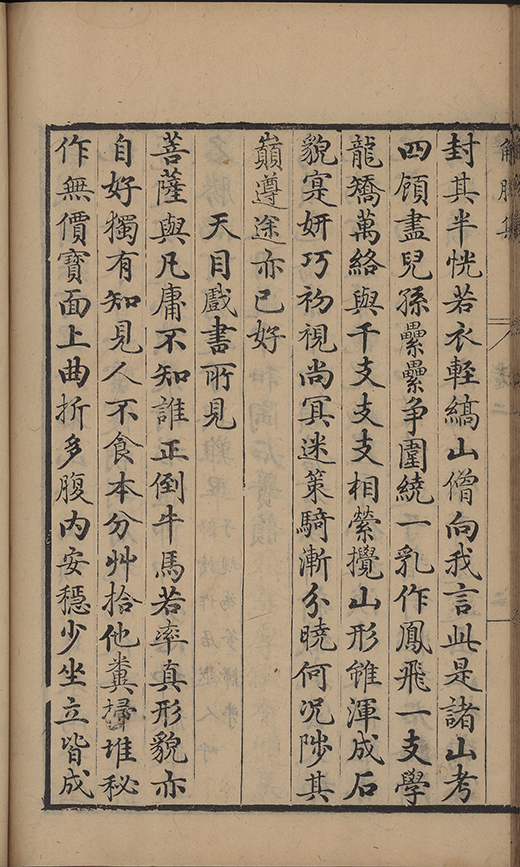 封其半恍若衣輕縞山僧向我言此是諸山考
四顧盡兒孫纍纍争圍繞一乳作鳳飛一支學
龍矯萬絡與千支支支相縈攪山形雖渾成石
貌寔妍巧初視尚冥迷策騎漸分曉何況陟其
巔遵途亦已好
天目戲書所見
菩薩與凡庸不知誰正倒牛馬若率真形貌亦
自好獨有知見人不食本分艸拾他糞掃堆秘
作無價寶面上曲折多腹內安穩少坐立皆成